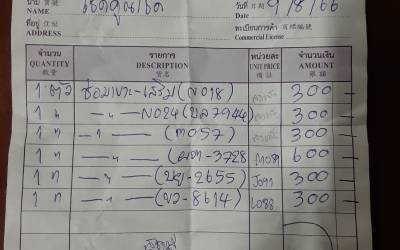 นาม 寶號
NAME
วันที่ 日期 9/8/66
Date
ที่อยู่ 住址
ADDRESS
ทะเบียนการค้า 商標編號
Commercial License
จำนวน รายการ หน่วยละ จำนวนเงิน
QUANTITY DESCRIPTION UNIT PRICE AMOUNT
数量 貨名 備註 銀額
1 ตัว ซ่อมเบาะ-เสริม (N018) 300 —
1 " — " — N024 (บล 7944) 300 —
1 " — " — (ฑ057) 300 —
1 " — " — (ฒต-3728) 600 —
1 " — " — (บย-2655) J099 300 —
1 " — " — (บว-8614) L088 300 —